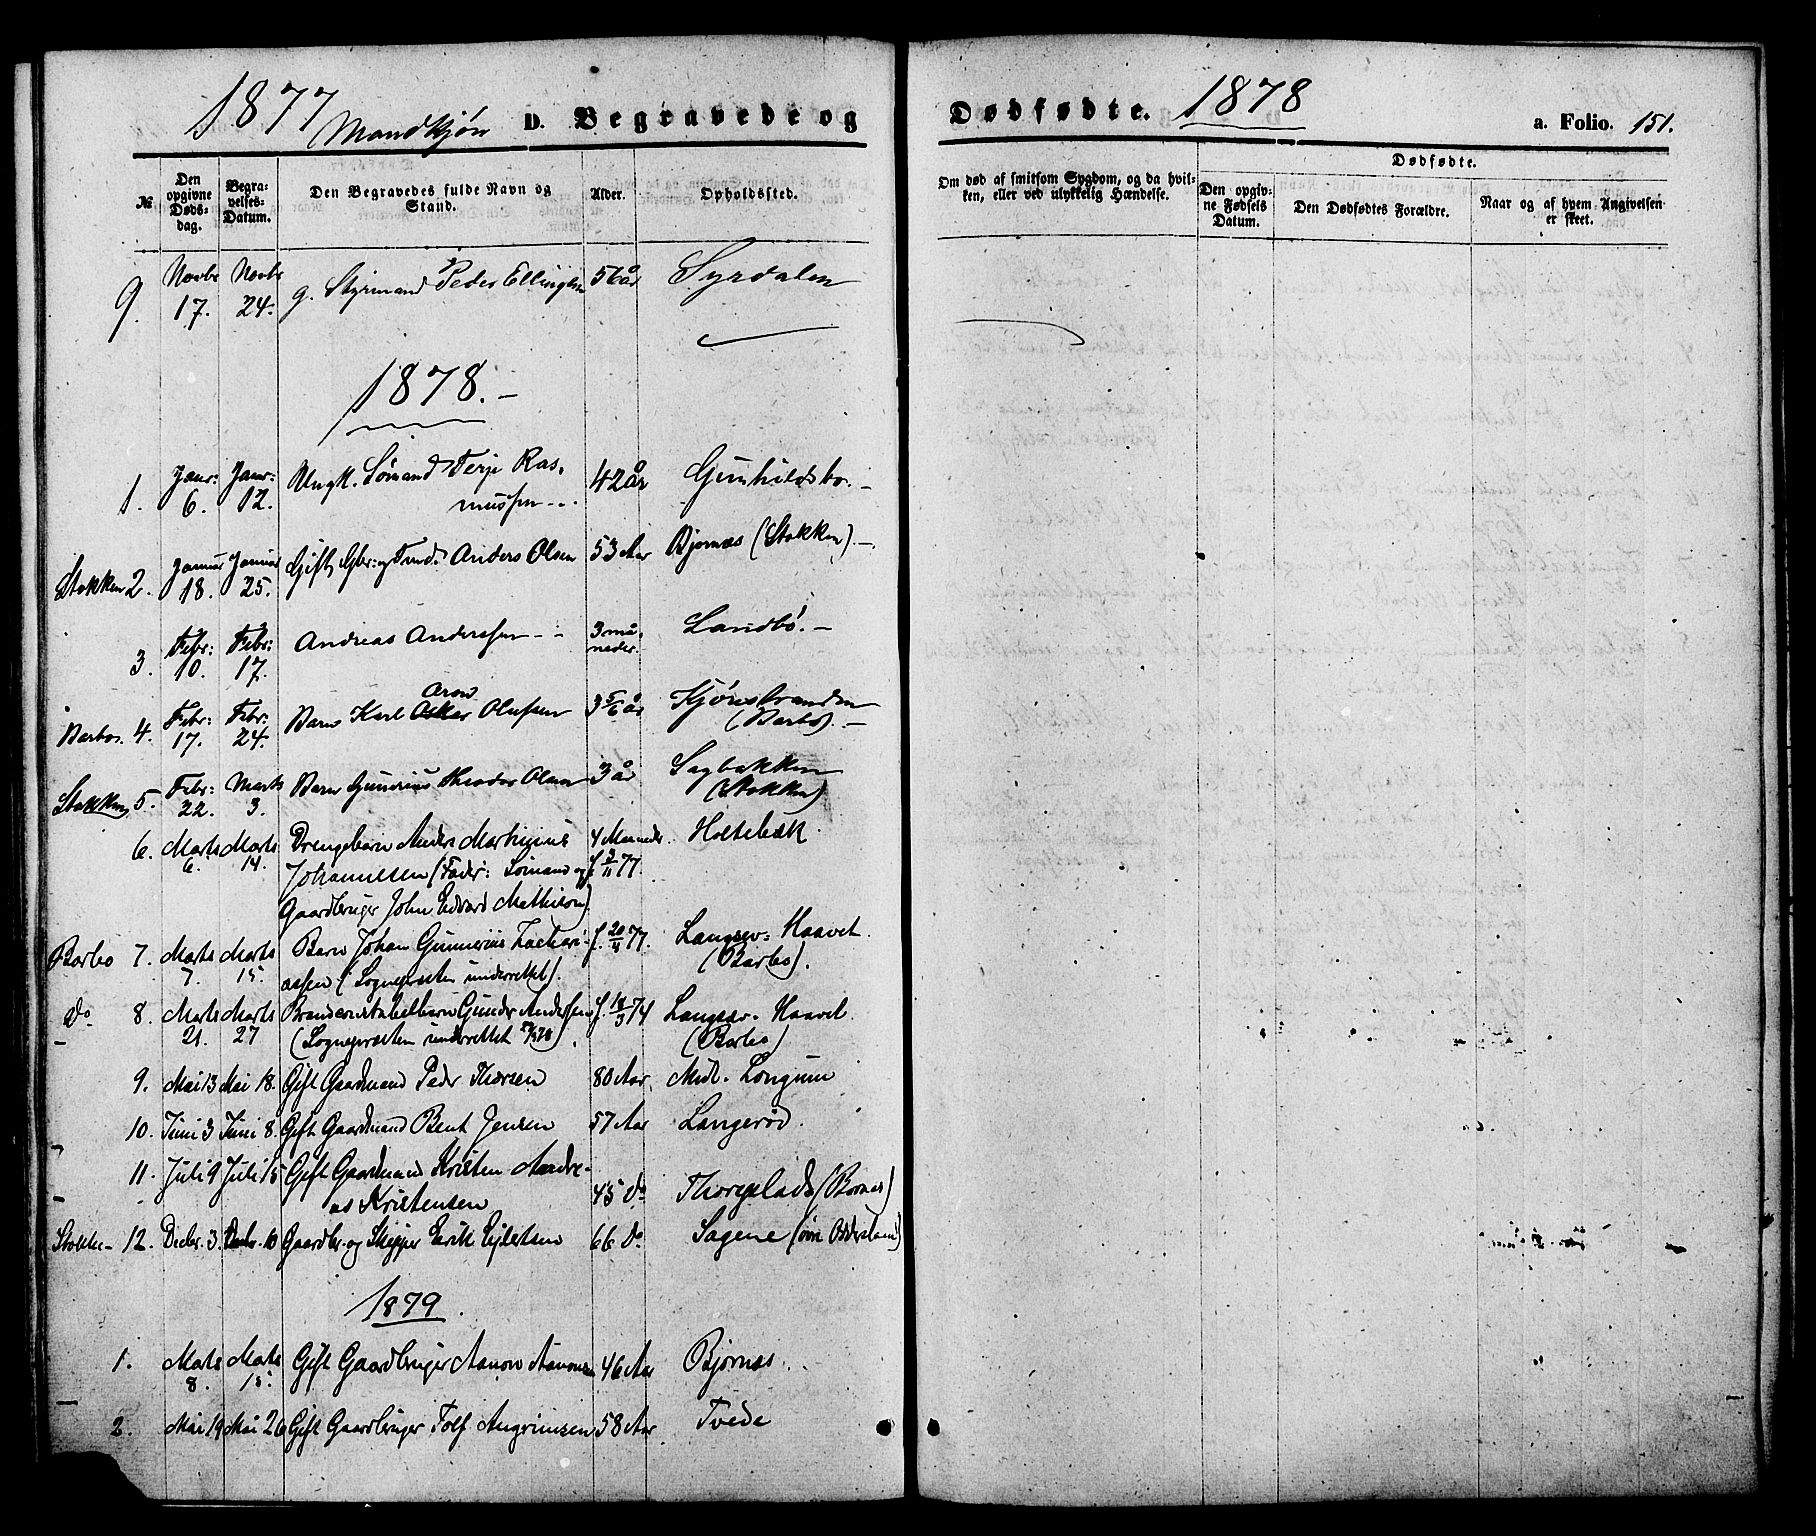 1877 Mandkjøn D. Begravede og Dødfødte. 1878 a. Folio. 151.
№
Den opgivne Døds-dag.
Begra-velses-Datum.
Den Begravedes fulde Navn og Stand.
Alder.
Opholdssted.
Om død af smitsom Sygdom, og da hvil-
ken, eller ved ulykkelig Hændelse.
Dødfødte.
Den opgiv-
ne Fødsels
Datum.
Den Dødfødtes Forældre.
Naar og af hvem Angivelsen
er skeet.
9. Novbr 17. Novbr 24. g. Styrmand Peder Ellingsen 56 år Syrdalen
1878.-
1. Janr: 6. Janr: 12. Ungk. Sømand Terje Ras-
mussen 42 år Gunhildsbo.-
Stokken 2. Januar 18. Januar 25. Gift Gbr: og Tmd. Anders Olsen 53 Aar Bjornæs (Stokken).-
3. Febr: 10. Febr: 17. Andreas Anderssen - - 3 må-
neder.- Landbø.-
Barbo. 4. Febr: 17. Febr: 24. Barn Karl Oskar Aron Olufsen 3 5/6 år Kjørsbranden
(Barbo).-
Stokken 5. Febr: 22. Marts 3. Barn Gunerius Theodor Olsen 3 år Sagbakken
(Stokken)
6. Marts 6. Marts 14. Drengebarn Anders Martinius 4 Maaneder. Holtebæk.
Johannesen (Fader: Sømand og f. 77.
Gaardbruger John Edvard Mathison)
Barbo 7. Marts 7. Marts 15. Barn Johan Gunnerius Zachari- f. 20/11 77. Langsev: Haavet
assen (Sognepresten underrettet). (Barbo).
Do 8. Marts 21. Marts 27 Brandconstabelbarn Gunder Andersen f. 18/3 74 Langsæv. Haavet.
(Sognepræsten underrettet). (Barbo)
9. Mai 13 Mai 18. Gift Gaardmand Peder Thorsen 80 Aar. Midl. Longum
10. Juni 3 Juni 8. Gift Gaardmand Bent Jensen 57 Aar Langerød.
11. Juli 9 Juli 15 Gift Gaardmand Kristen Andre-
as Kristensen 45 Do Thorsplads (Bornæs)
Stokke- 12. Decbr. 3. Decbr. 10 Gaardbr. og Skipper Erik Eilertsen 66 Do Sagene
1879.
1. Marts 8. Marts 15. Gift Gaardbruger Aanon Aanonsen 46 Aar Bjornæs.
2. Mai 19 Mai 26 Gift Gaardbruger Tolf Angrimsen 58 Aar Tvede